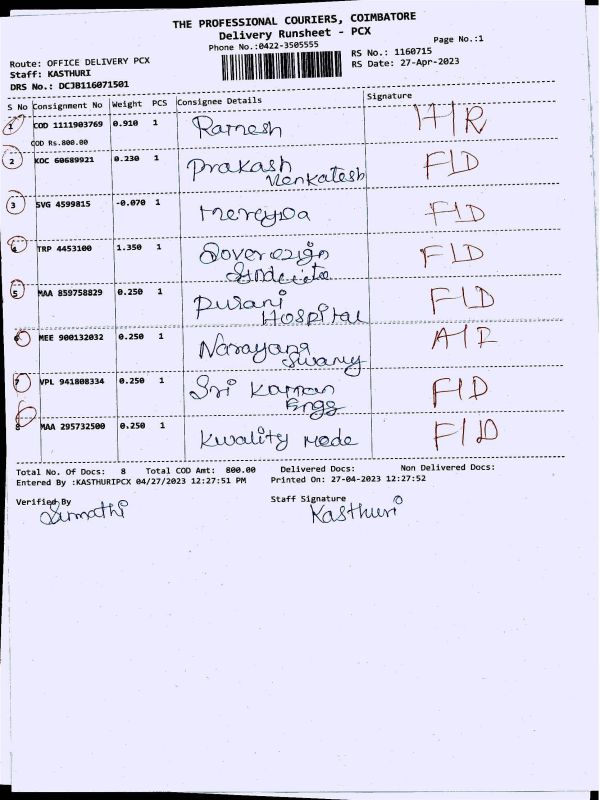 THE PROFESSIONAL COURIERS, COIMBATORE
Delivery Runsheet - PCX
Phone No.:0422-3505555
Page No.:1
Route: OFFICE DELIVERY PCX
RS No.: 1160715
Staff: KASTHURI
RS Date: 27-Apr-2023
DRS No.: DCJB116071501
S No Consignment No Weight PCS Consignee Details Signature
1 COD 1111903769 0.910 1 Ramesh
COD Rs.800.00
2 KOC 60689921 0.230 1 Prakash Venkatesh FID
3 SVG 4599815 -0.070 1 FID
4 TRP 4453100 1.350 1 Sovereign FID
5 MAA 859758829 0.250 1 Purani Hospital FID
6 MEE 900132032 0.250 1 Narayana Swamy
7 VPL 941808334 0.250 1 Sri Kannan Engg FID
8 MAA 295732500 0.250 1 Kwality Mode FID
Total No. Of Docs: 8 Total COD Amt: 800.00 Delivered Docs: Non Delivered Docs:
Entered By :KASTHURIPCX 04/27/2023 12:27:51 PM Printed On: 27-04-2023 12:27:52
Verified By Staff Signature
Sumathi Kasthuri